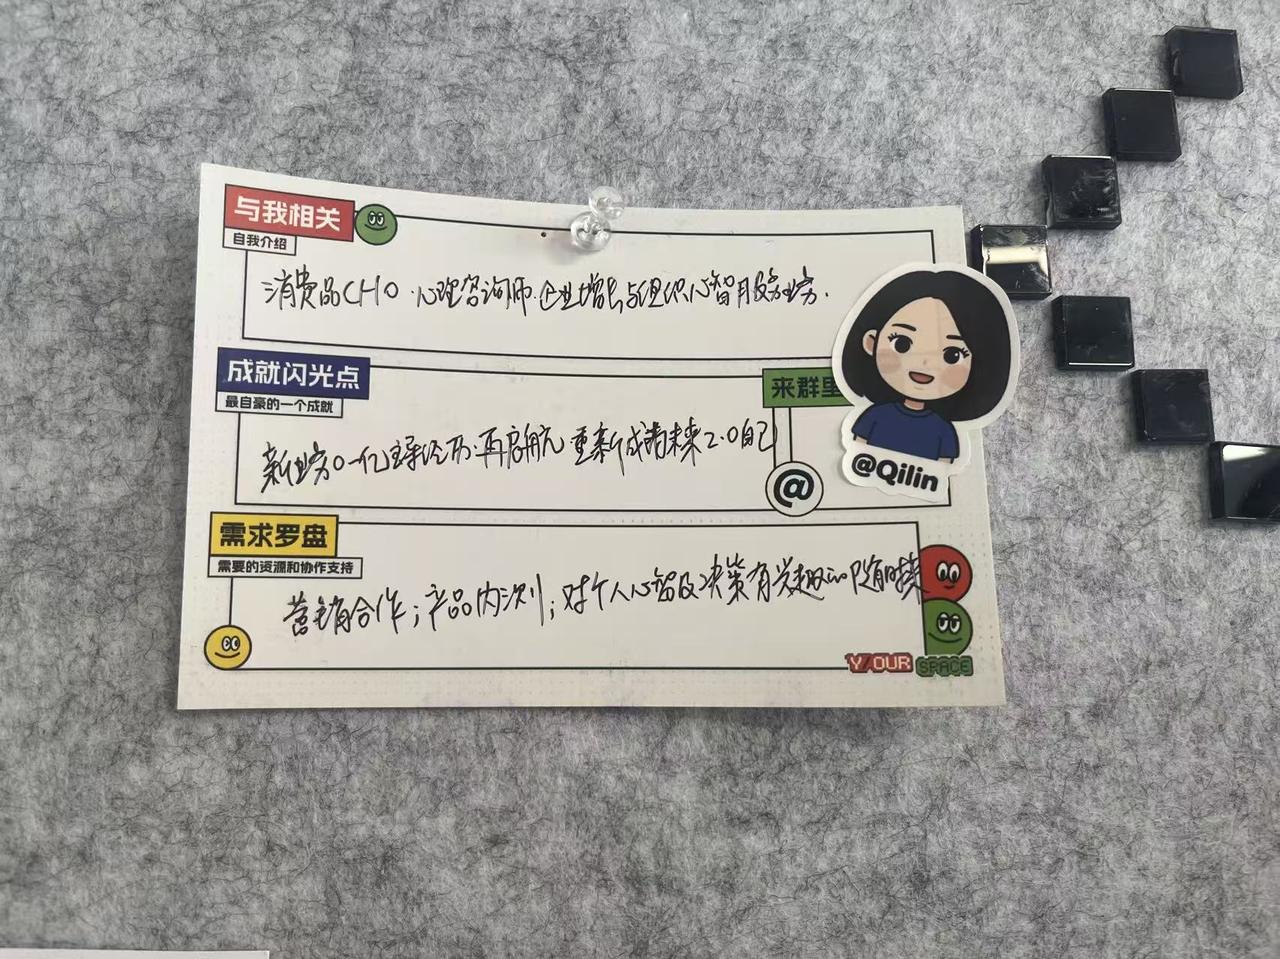 与我相关
自我介绍
消费品CHO·心理咨询师·企业增长与组织心智服务
成就闪光点
最自豪的一个成就
来群里
新业务0-1亿 经历·再启航 重新成为未来2.0自己
@
@Qilin
需求罗盘
需要的资源和协作支持
营销合作；产品内测；对个人心智及决策有兴趣的随时聊
Y/OUR SPACE